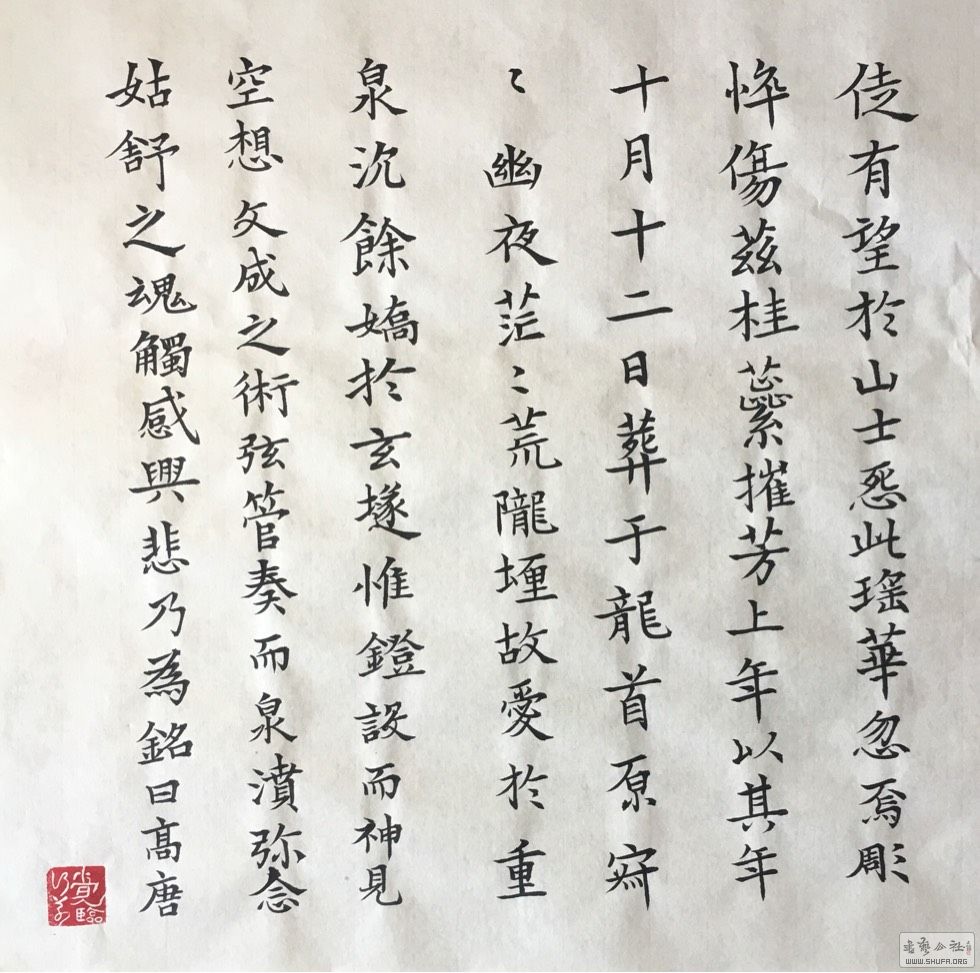 徒有望於山士恧此瑤華忽焉彫
悴傷茲桂蘂摧芳上年以其年
十月十二日葬于龍首原寂
〻幽夜茫〻荒隴堙故愛於重
泉沉餘嬌於玄燧惟鐙設而神見
空想文成之術弦管奏而泉濆弥念
姑舒之魂觸感興悲乃為銘曰髙唐
WWW.SHUFA.ORG